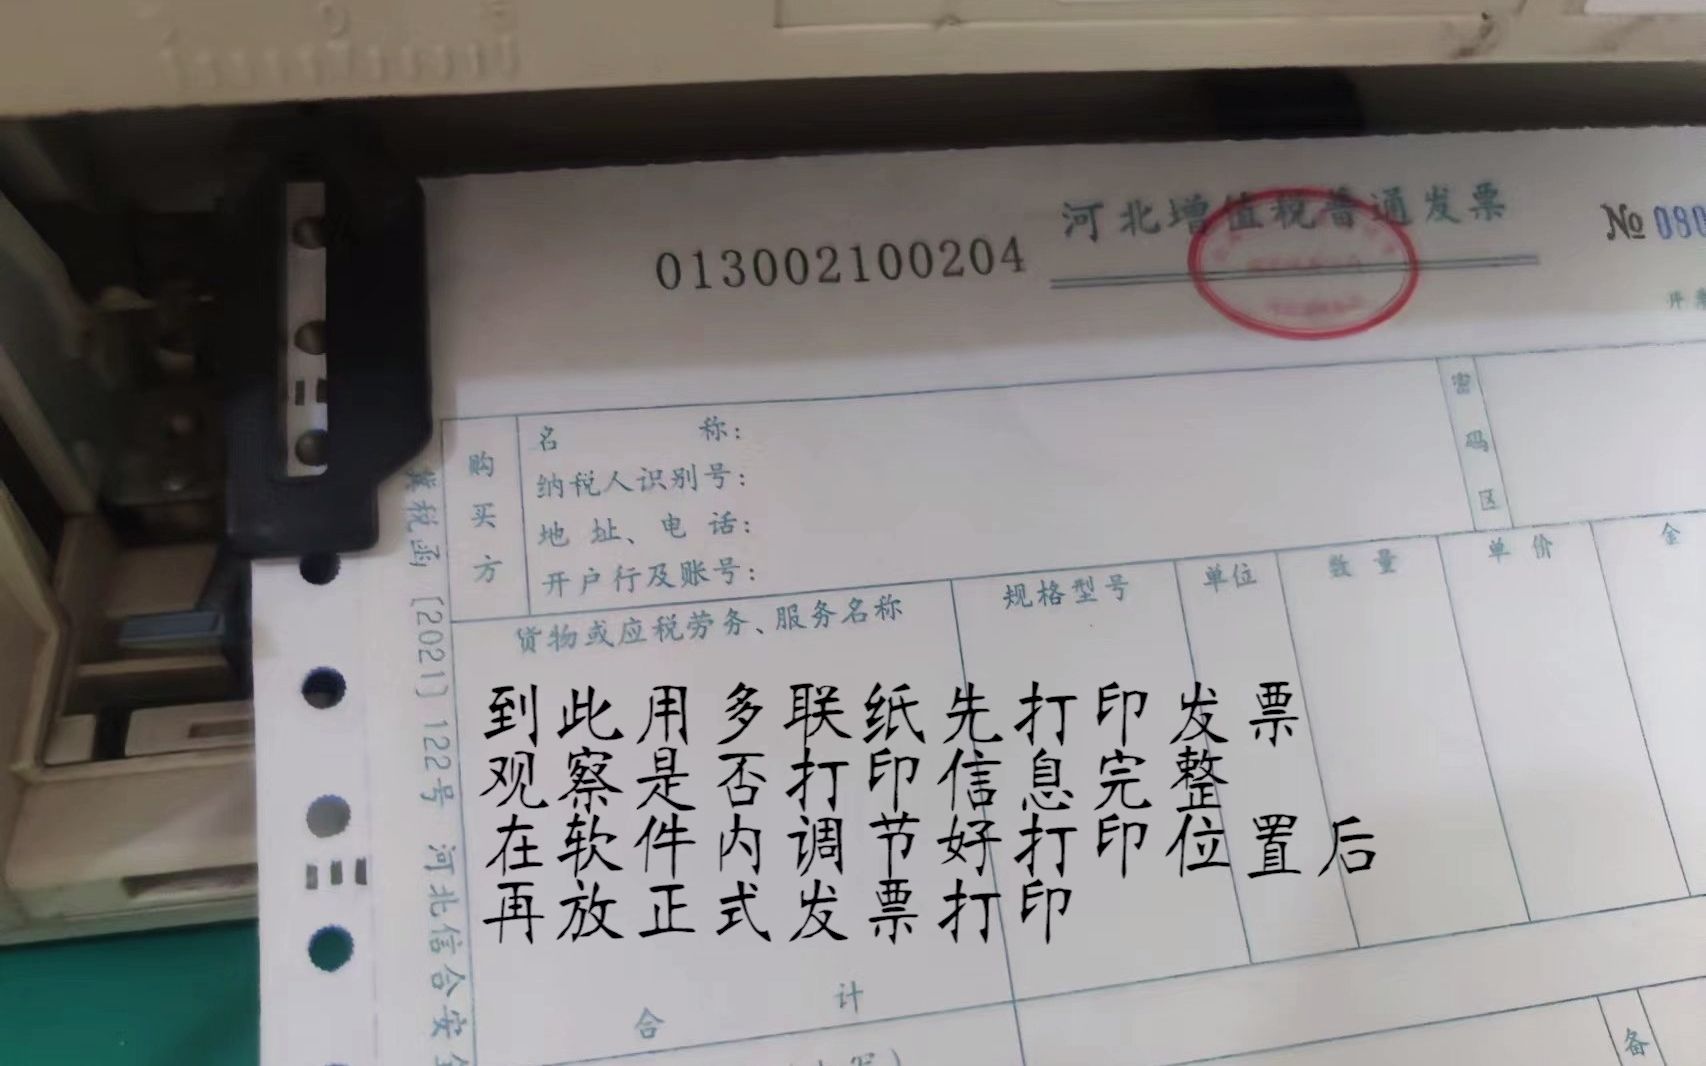 013002100204
河北增值税普通发票
№ 080
开票
购买方
名称：
纳税人识别号：
地址、电话：
开户行及账号：
密码区
货物或应税劳务、服务名称
规格型号
单位
数量
单价
金
到此用多联纸先打印发票
观察是否打印信息完整
在软件内调节好打印位置后
再放正式发票打印
合计
备
冀税函〔2021〕122号 河北信合安全